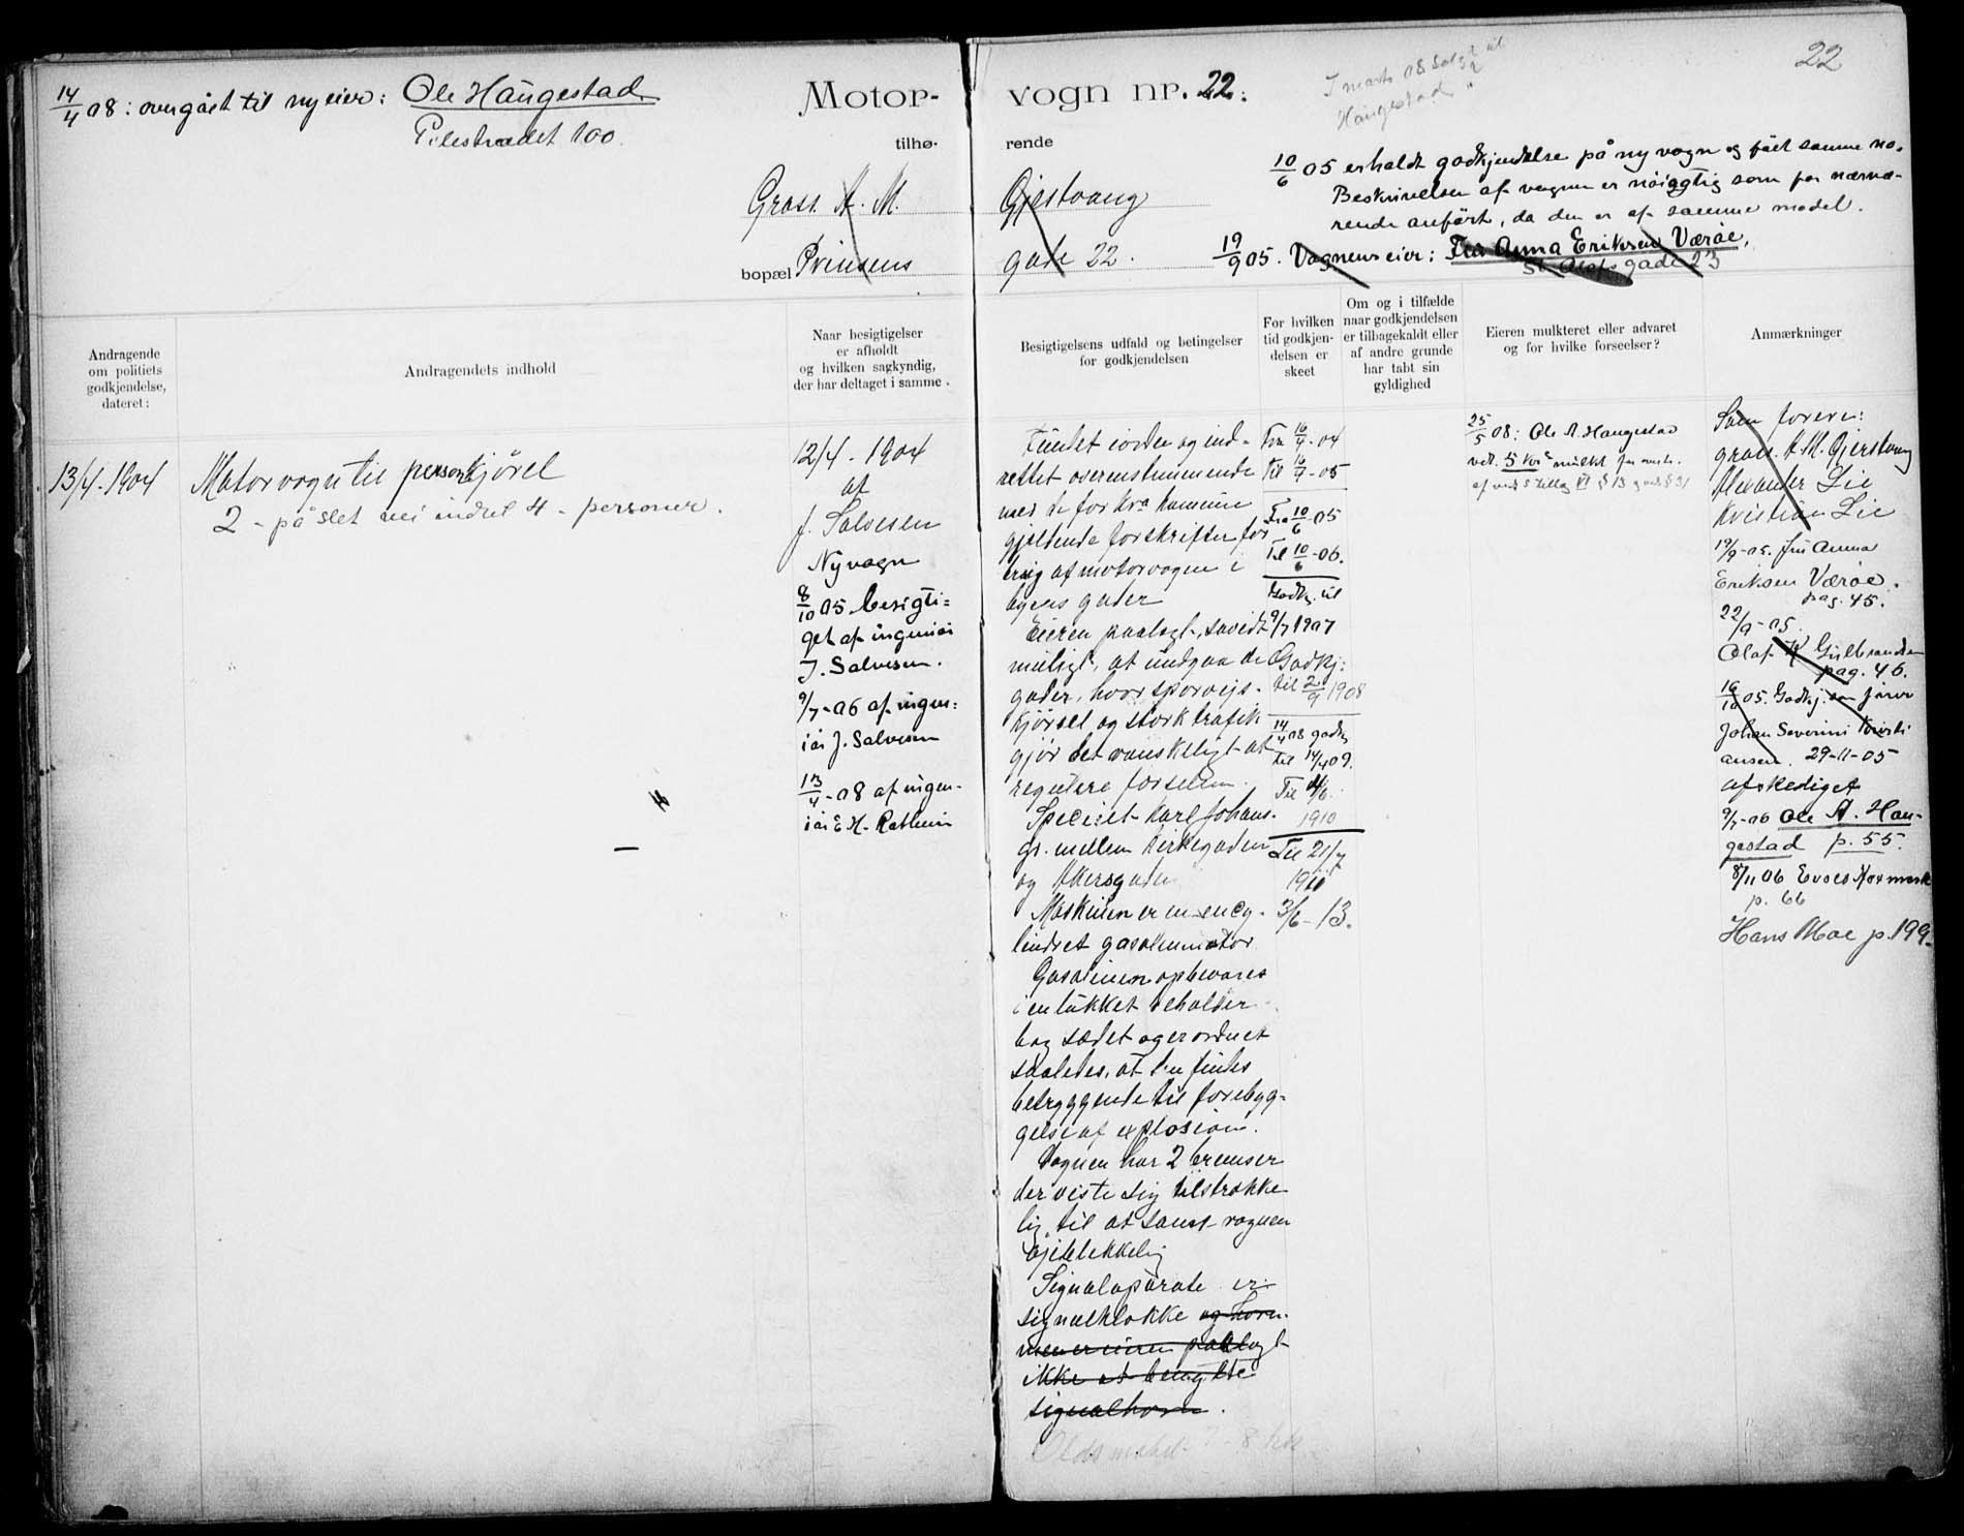 14/4 08: overgået til ny eier: Ole Haugestad
Pilestrædet 100.
Motor-vogn nr. 22.
I marts 08 solgt til
Haugestad
22
tilhørende
Gross. A. M. Gjestvang
bopæl Prinsens gade 22.
10/6 05 erholdt godkjendelse på ny vogn og fået samme no.
Beskrivelsen af vognen er nöiagtig som för nærvæ-
rende anfört, da den er af samme model.
19/9 05. Vognens eier: Frk Anna Eriksen Værøe,
St. Olafs gade 23
Andragende
om politiets
godkjendelse,
dateret:
Andragendets indhold
Naar besigtigelser
er afholdt
og hvilken sagkyndig,
der har deltaget i samme.
Besigtigelsens udfald og betingelser
for godkjendelsen
For hvilken
tid godkjen-
delsen er
skeet
Om og i tilfælde
naar godkjendelsen
er tilbagekaldt eller
af andre grunde
har tabt sin
gyldighed
Eieren mulkteret eller advaret
og for hvilke forseelser?
Anmærkninger
13/4-1904
Motorvogn til personkjörel
2 - på slet vei indtil 4 - personer.
12/4 - 1904
af
J. Salvesen
Ny vogn
8/10 05 besigti=
get af ingeniör
J. Salvesen.
9/7-06 af ingen=
iör J. Salvesen
13/4-08 af ingen-
iör E H.
Fundet i orden og ind-
rettet overensstemmende
med de for Kra kommune
gjeldende forskrifter for
brug af motorvogne i
byens gader
Eieren paalagt, savidt
muligt, at undgaa de
gader, hvor sporvejs-
kjørsel og stærk trafik
gjör det vanskeligt at
regulere farten.
Specielt Karl Johans
gt. mellem Kirkegaden
og Akersgaden
Maskinen er en ency-
lindret gasolinmotor
Gasolinen opbevares
i en lukket beholder
bag sædet og er ordnet
saaledes, at den findes
betryggende til forebyg-
gelse af explosion.
Vognen har 2 bremser
der viste sig tilstrække
lig til at stanse vognen
öjeblikkelig
Signalaparate er
signalklokke og horn
men er eieren paalagt
ikke at benytte
signalhorn.
Oldsmobil 7-8 hk
Fra 16/4-04
til 16/4-05
Fra 10/6-05
til 10/6-06.
Godkj. til
9/7 1907
Godkj:
til 2/9 1908
14/4 08 godkj
til 14/4 09.
Til
1910
Til 21/7
1910
3/6-13.
25/5 08: Ole A. Haugestad
ved. 5 Krs mulkt for overtr.
Som förere:
gross. A. M. Gjerstvang
Alexander Lie
Kristian Lie
19/9-05. frk Anna
Eriksen Værøe.
pag. 45.
22/9-05.
Olaf K Gulbrandsen
pag. 46.
16/10 05. Godkj. som förer
Johan Severin Kristi
ansen. 29-11-05
afskediget
9/7-06 Ole A. Hau-
gestad p. 55.
8/11 06
p. 66
Hans Moe p. 199.